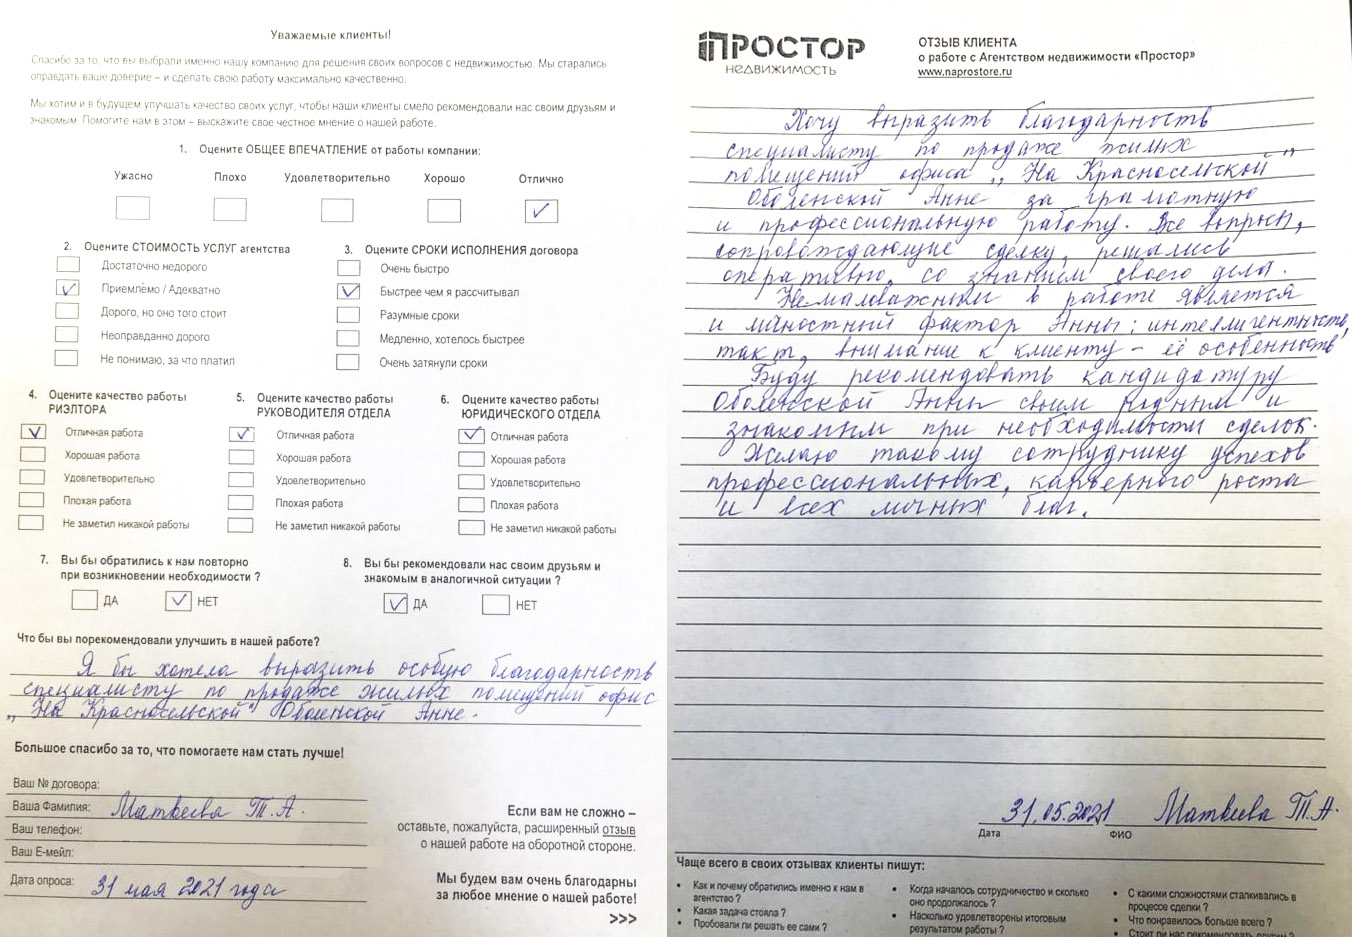 Уважаемые клиенты!
Спасибо за то, что вы выбрали именно нашу компанию для решения своих вопросов с недвижимостью. Мы старались
оправдать ваше доверие – и сделать свою работу максимально качественно.
Мы хотим и в будущем улучшать качество своих услуг, чтобы наши клиенты смело рекомендовали нас своим друзьям и
знакомым. Помогите нам в этом – выскажите свое честное мнение о нашей работе.
1. Оцените ОБЩЕЕ ВПЕЧАТЛЕНИЕ от работы компании:
Ужасно Плохо Удовлетворительно Хорошо Отлично
2. Оцените СТОИМОСТЬ УСЛУГ агентства
Достаточно недорого
Приемлемо / Адекватно
Дорого, но оно того стоит
Неоправданно дорого
Не понимаю, за что платил
3. Оцените СРОКИ ИСПОЛНЕНИЯ договора
Очень быстро
Быстрее чем я рассчитывал
Разумные сроки
Медленно, хотелось быстрее
Очень затянули сроки
4. Оцените качество работы
РИЭЛТОРА
Отличная работа
Хорошая работа
Удовлетворительно
Плохая работа
Не заметил никакой работы
5. Оцените качество работы
РУКОВОДИТЕЛЯ ОТДЕЛА
Отличная работа
Хорошая работа
Удовлетворительно
Плохая работа
Не заметил никакой работы
6. Оцените качество работы
ЮРИДИЧЕСКОГО ОТДЕЛА
Отличная работа
Хорошая работа
Удовлетворительно
Плохая работа
Не заметил никакой работы
7. Вы бы обратились к нам повторно
при возникновении необходимости ?
ДА НЕТ
8. Вы бы рекомендовали нас своим друзьям и
знакомым в аналогичной ситуации ?
ДА НЕТ
Что бы вы порекомендовали улучшить в нашей работе?
Я бы хотела выразить особую благодарность
специалисту по продаже жилых помещений офис
„На Красносельской" Оболенской Анне.
Большое спасибо за то, что помогаете нам стать лучше!
Ваш № договора:
Ваша Фамилия: Матвеева Т.А.
Ваш телефон:
Ваш Е-мейл:
Дата опроса: 31 мая 2021 года
Если вам не сложно –
оставьте, пожалуйста, расширенный отзыв
о нашей работе на оборотной стороне.
Мы будем вам очень благодарны
за любое мнение о нашей работе!
>>>
ПРОСТОР
НЕДВИЖИМОСТЬ
ОТЗЫВ КЛИЕНТА
о работе с Агентством недвижимости «Простор»
www.naprostore.ru
Хочу выразить благодарность
специалисту по продаже жилых
помещений офиса „На Красносельской"
Оболенской Анне за грамотную
и профессиональную работу. Все вопросы,
сопровождающие сделку, решались
оперативно, со знанием своего дела.
Немаловажным в работе является
и личностный фактор Анны: интеллигентность,
такт, внимание к клиенту – её особенность
Буду рекомендовать кандидатуру
Оболенской Анны своим родным и
знакомым при необходимости сделок.
Желаю такому сотруднику успехов
профессиональных, карьерного роста
и всех личных благ.
31.05.2021 Матвеева Т.А.
Дата ФИО
Чаще всего в своих отзывах клиенты пишут:
• Как и почему обратились именно к нам в
агентство ?
• Какая задача стояла ?
• Пробовали ли решать ее сами ?
• Когда началось сотрудничество и сколько
оно продолжалось ?
• Насколько удовлетворены итоговым
результатом работы ?
• С какими сложностями сталкивались в
процессе сделки ?
• Что понравилось больше всего ?
• Стоит ли нас рекомендовать другим ?